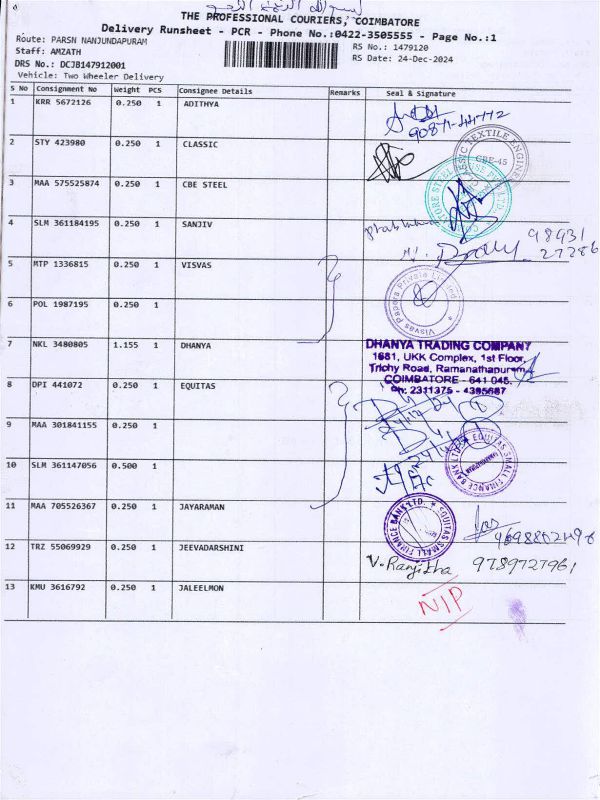 بسم الله الرحمن الرحيم
THE PROFESSIONAL COURIERS, COIMBATORE
Delivery Runsheet - PCR - Phone No.:0422-3505555 - Page No.:1
Route: PARSN NANJUNDAPURAM
RS No.: 1479120
Staff: AMZATH
RS Date: 24-Dec-2024
DRS No.: DCJB147912001
Vehicle: Two Wheeler Delivery
S No Consignment No Weight PCS Consignee Details Remarks Seal & Signature
1 KRR 5672126 0.250 1 ADITHYA
90877-44772
2 STY 423980 0.250 1 CLASSIC
CLASSIC TEXTILE ENGINE
CBE-45
3 MAA 575525874 0.250 1 CBE STEEL
4 SLM 361184195 0.250 1 SANJIV
98431
27286
5 MTP 1336815 0.250 1 VISVAS
Visvas Papers Private Limited
6 POL 1987195 0.250 1
7 NKL 3480805 1.155 1 DHANYA
DHANYA TRADING COMPANY
1681, UKK Complex, 1st Floor,
Trichy Road, Ramanathapuram,
COIMBATORE - 641 045.
Ph: 2311375 - 4385687
8 DPI 441072 0.250 1 EQUITAS
9 MAA 301841155 0.250 1
10 SLM 361147056 0.500 1
EQUITAS SMALL FINANCE BANK LTD
11 MAA 705526367 0.250 1 JAYARAMAN
EQUITAS SMALL FINANCE BANK LTD.
12 TRZ 55069929 0.250 1 JEEVADARSHINI
V. Ranjitha 9789727961
13 KMU 3616792 0.250 1 JALEELMON
NIP